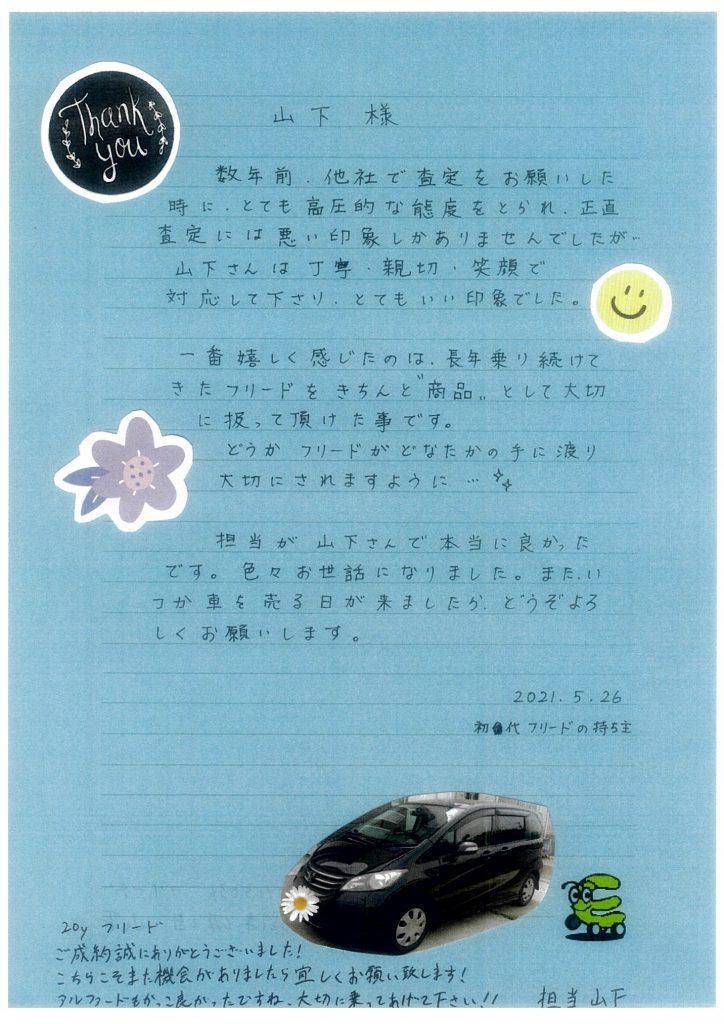 Thank
you
山下 様
数年前、他社で査定をお願いした
時に、とても高圧的な態度をとられ、正直
査定には悪い印象しかありませんでしたが…
山下さんは丁寧・親切・笑顔で
対応して下さり、とてもいい印象でした。
一番嬉しく感じたのは、長年乗り続けて
きたフリードをきちんと〝商品〟として大切
に扱って頂けた事です。
どうか フリードがどなたかの手に渡り
大切にされますように…
担当が山下さんで本当に良かった
です。色々お世話になりました。また、い
つか車を売る日が来ましたら、どうぞよろ
しくお願いします。
2021.5.26
初代フリードの持ち主
20y フリード
ご成約誠にありがとうございました!
こちらこそまた機会がありましたら宜しくお願い致します!
アルファードもかっこ良かったですね、大切に乗ってあげて下さい!! 担当 山下